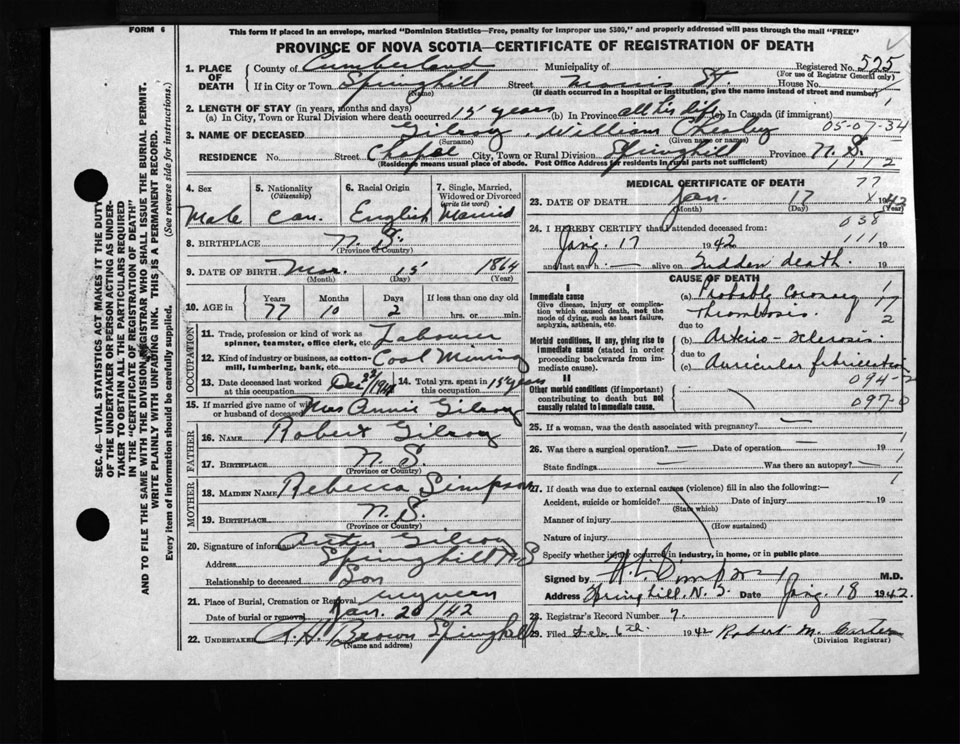 This form if placed in an envelope, marked "Dominion Statistics—Free, penalty for improper use $300," and properly addressed will pass through the mail "FREE"
FORM 6
PROVINCE OF NOVA SCOTIA—CERTIFICATE OF REGISTRATION OF DEATH
SEC. 46—VITAL STATISTICS ACT MAKES IT THE DUTY
OF THE UNDERTAKER OR PERSON ACTING AS UNDER-
TAKER TO OBTAIN ALL THE PARTICULARS REQUIRED
IN THE "CERTIFICATE OF REGISTRATION OF DEATH"
AND TO FILE THE SAME WITH THE DIVISION REGISTRAR WHO SHALL ISSUE THE BURIAL PERMIT.
WRITE PLAINLY WITH UNFADING INK. THIS IS A PERMANENT RECORD.
Every item of information should be carefully supplied. (See reverse side for instructions.)
1. PLACE OF DEATH County of Cumberland Municipality of Registered No. 525
(For use of Registrar General only)
If in City or Town Springhill Street St. House No.
(Name) (If death occurred in a hospital or institution, give the name instead of street and number)
2. LENGTH OF STAY (in years, months and days)
(a) In City, Town or Rural Division where death occurred 15 years (b) In Province all his life (c) In Canada (if immigrant)
3. NAME OF DECEASED Gilroy, William 05-07-34
(Surname) (Given name or names)
RESIDENCE No. Street Chapel City, Town or Rural Division Springhill Province N.S.
(Residence means usual place of abode. Post Office Address for residents in rural parts not sufficient) 1, 1, 2
4. Sex Male
5. Nationality (Citizenship) Can.
6. Racial Origin English
7. Single, Married, Widowed or Divorced (write the word) Married
8. BIRTHPLACE N.S.
(Province or Country)
9. DATE OF BIRTH Mar. 15 1864
(Month) (Day) (Year)
10. AGE in Years 77 Months 10 Days 2 If less than one day old hrs. or min.
OCCUPATION
11. Trade, profession or kind of work as spinner, teamster, office clerk, etc. Labourer
12. Kind of industry or business, as cotton-mill, lumbering, bank, etc. Coal Mining
13. Date deceased last worked at this occupation Dec 14. Total yrs. spent in this occupation 15 years
15. If married give name of wife or husband of deceased Mrs Annie Gilroy
FATHER
16. NAME Robert Gilroy
17. BIRTHPLACE N.S.
(Province or Country)
MOTHER
18. MAIDEN NAME Rebecca Simpson
19. BIRTHPLACE N.S.
(Province or Country)
20. Signature of informant Gilroy
Address Springhill N.S
Relationship to deceased Son
21. Place of Burial, Cremation or Removal
Date of burial or removal Jan. 20/42
22. UNDERTAKER A.H. Brown Springhill
(Name and address)
MEDICAL CERTIFICATE OF DEATH 77
23. DATE OF DEATH Jan. 17 1942
(Month) (Day) (Year)
038
24. I HEREBY CERTIFY that I attended deceased from:
Jan. 17 1942 111 19
and last saw h — alive on Sudden death. 19
CAUSE OF DEATH
I
Immediate cause
Give disease, injury or complication which caused death, not the mode of dying, such as heart failure, asphyxia, asthenia, etc.
(a) Probably Coronary Thrombosis.
due to
Morbid conditions, if any, giving rise to immediate cause (stated in order proceeding backwards from immediate cause).
(b) Arterio-sclerosis.
due to
(c) Auricular fibrillation
II
Other morbid conditions (if important) contributing to death but not causally related to immediate cause.
094-2
097-0
25. If a woman, was the death associated with pregnancy? —
26. Was there a surgical operation? — Date of operation — 19
State findings — Was there an autopsy? —
27. If death was due to external causes (violence) fill in also the following:—
Accident, suicide or homicide? Date of injury 19
(State which)
Manner of injury
(How sustained)
Nature of injury
Specify whether injury occurred in industry, in home, or in public place
Signed by M.D.
Address Springhill, N.S. Date Jan. 18 1942.
28. Registrar's Record Number 7
29. Filed Feb. 6th. 1942 Robert M. Carter
(Division Registrar)